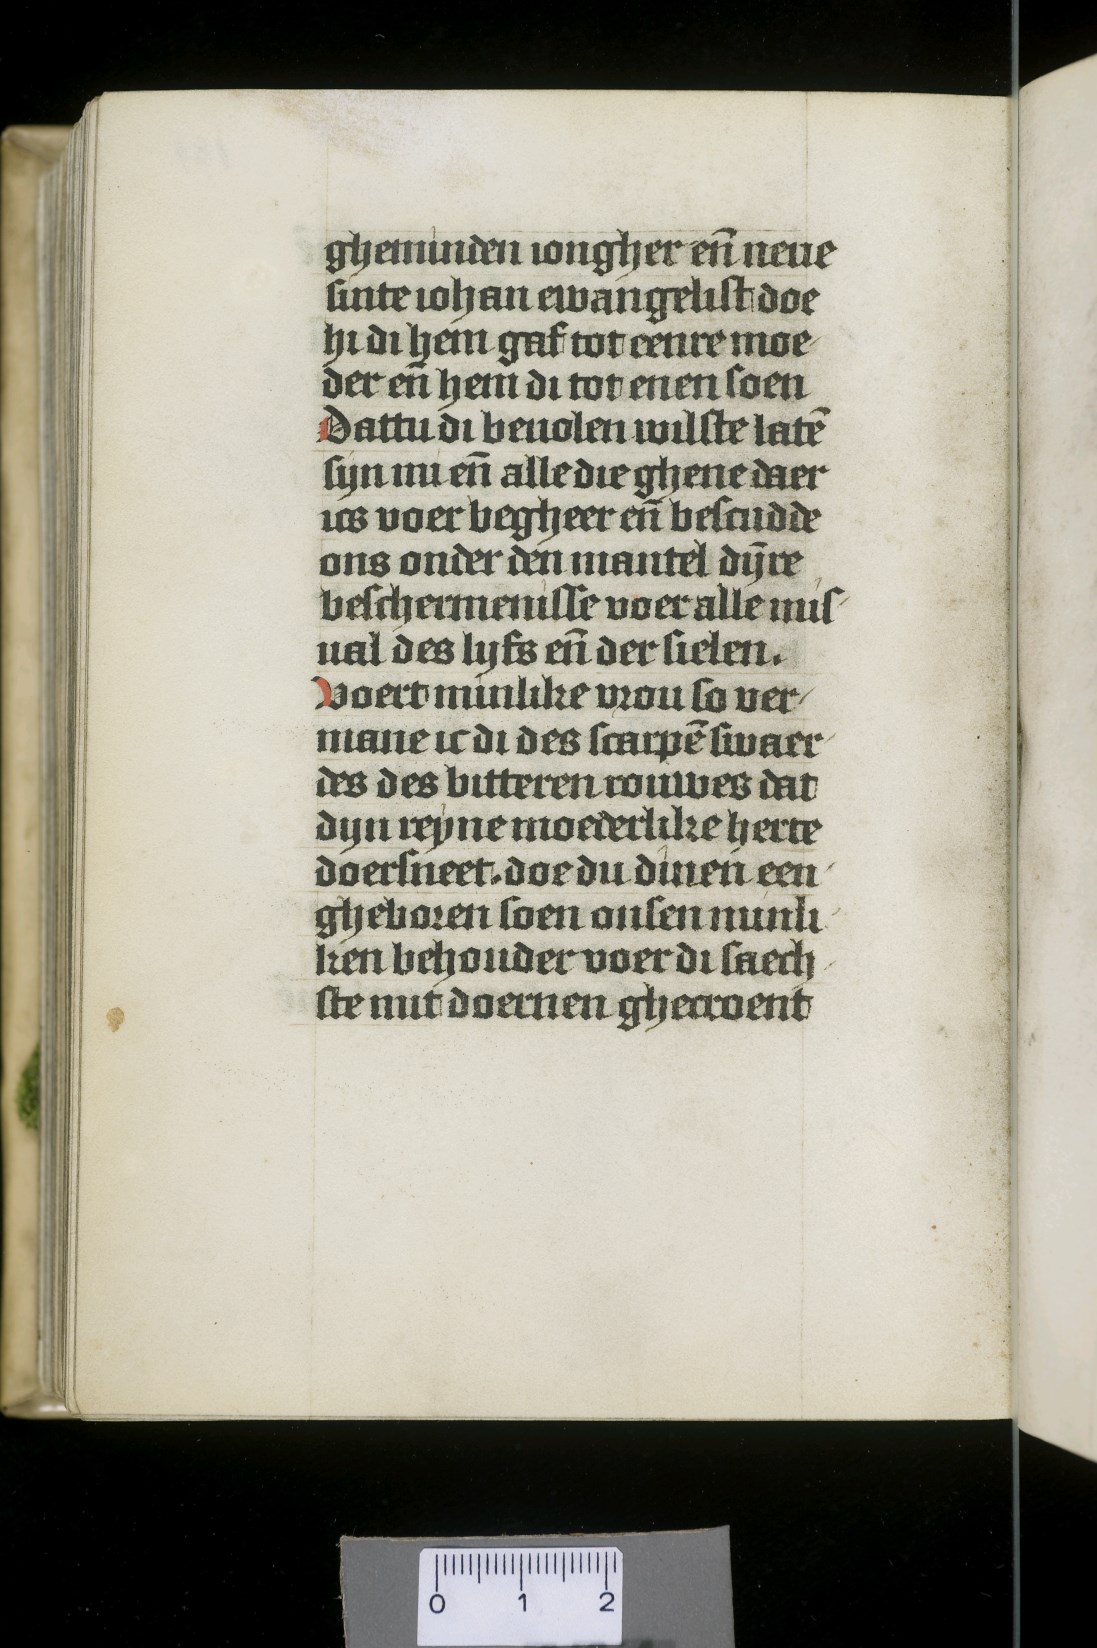 gheminden iongher en̄ neue
sinte iohan ewangelist doe
hi di hem gaf tot eenre moe
der en̄ hem di tot enen soen
Dattu di beuolen wilste latē
sijn mi en̄ alle die ghene daer
ics voer begheer en̄ bescudde
ons onder den mantel dȳre
beschermenisse voer alle mis
ual des lijfs en̄ der sielen.
Voert minlike vrou so ver
mane ic di des scarpē swaer
des des bitteren rouwes dat
dijn reyne moederlike herte
doersneet. doe du dinen een
gheboren soen onsen minli
ken behouder voer di saech
ste mit doernen ghecroent
0 1 2